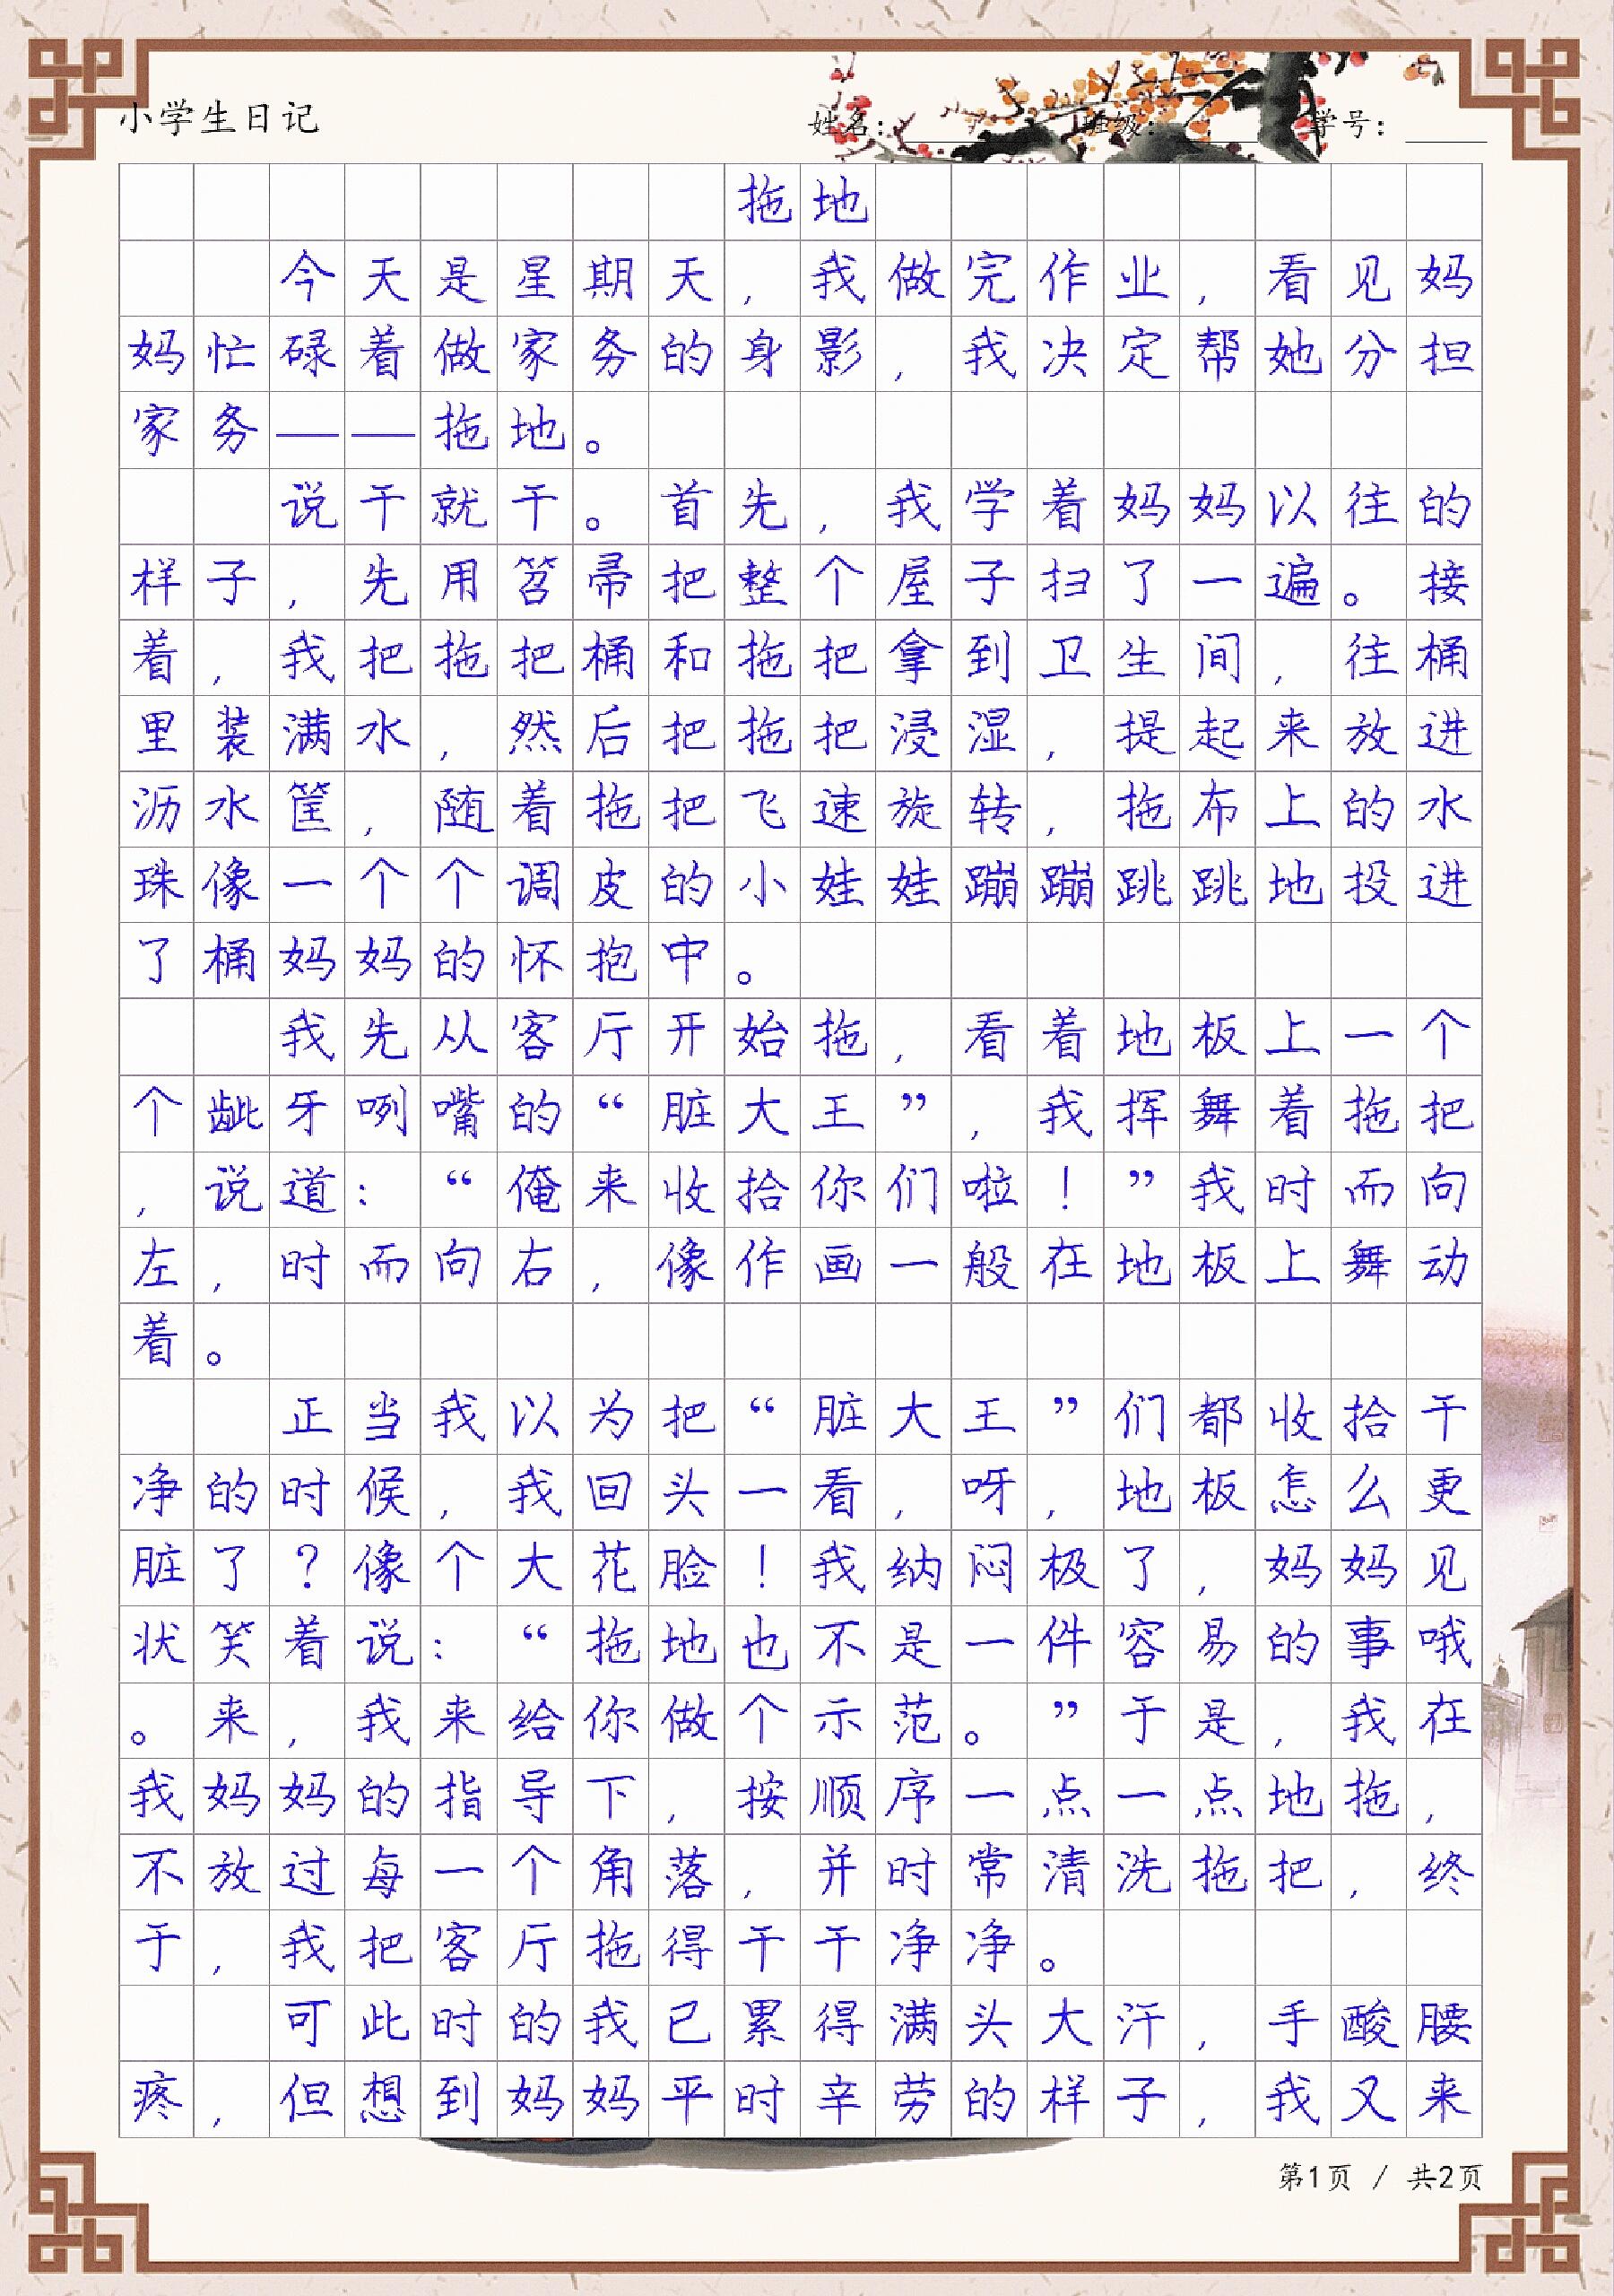 小学生日记 姓名： 班级： 学号：
拖地
今天是星期天，我做完作业，看见妈
妈忙碌着做家务的身影，我决定帮她分担
家务——拖地。
说干就干。首先，我学着妈妈以往的
样子，先用笤帚把整个屋子扫了一遍。接
着，我把拖把桶和拖把拿到卫生间，往桶
里装满水，然后把拖把浸湿，提起来放进
沥水筐，随着拖把飞速旋转，拖布上的水
珠像一个个调皮的小娃娃蹦蹦跳跳地投进
了桶妈妈的怀抱中。
我先从客厅开始拖，看着地板上一个
个龇牙咧嘴的“脏大王”，我挥舞着拖把
，说道：“俺来收拾你们啦！”我时而向
左，时而向右，像作画一般在地板上舞动
着。
正当我以为把“脏大王”们都收拾干
净的时候，我回头一看，呀，地板怎么更
脏了？像个大花脸！我纳闷极了，妈妈见
状笑着说：“拖地也不是一件容易的事哦
。来，我来给你做个示范。”于是，我在
我妈妈的指导下，按顺序一点一点地拖，
不放过每一个角落，并时常清洗拖把，终
于，我把客厅拖得干干净净。
可此时的我已累得满头大汗，手酸腰
疼，但想到妈妈平时辛劳的样子，我又来
第1页 / 共2页